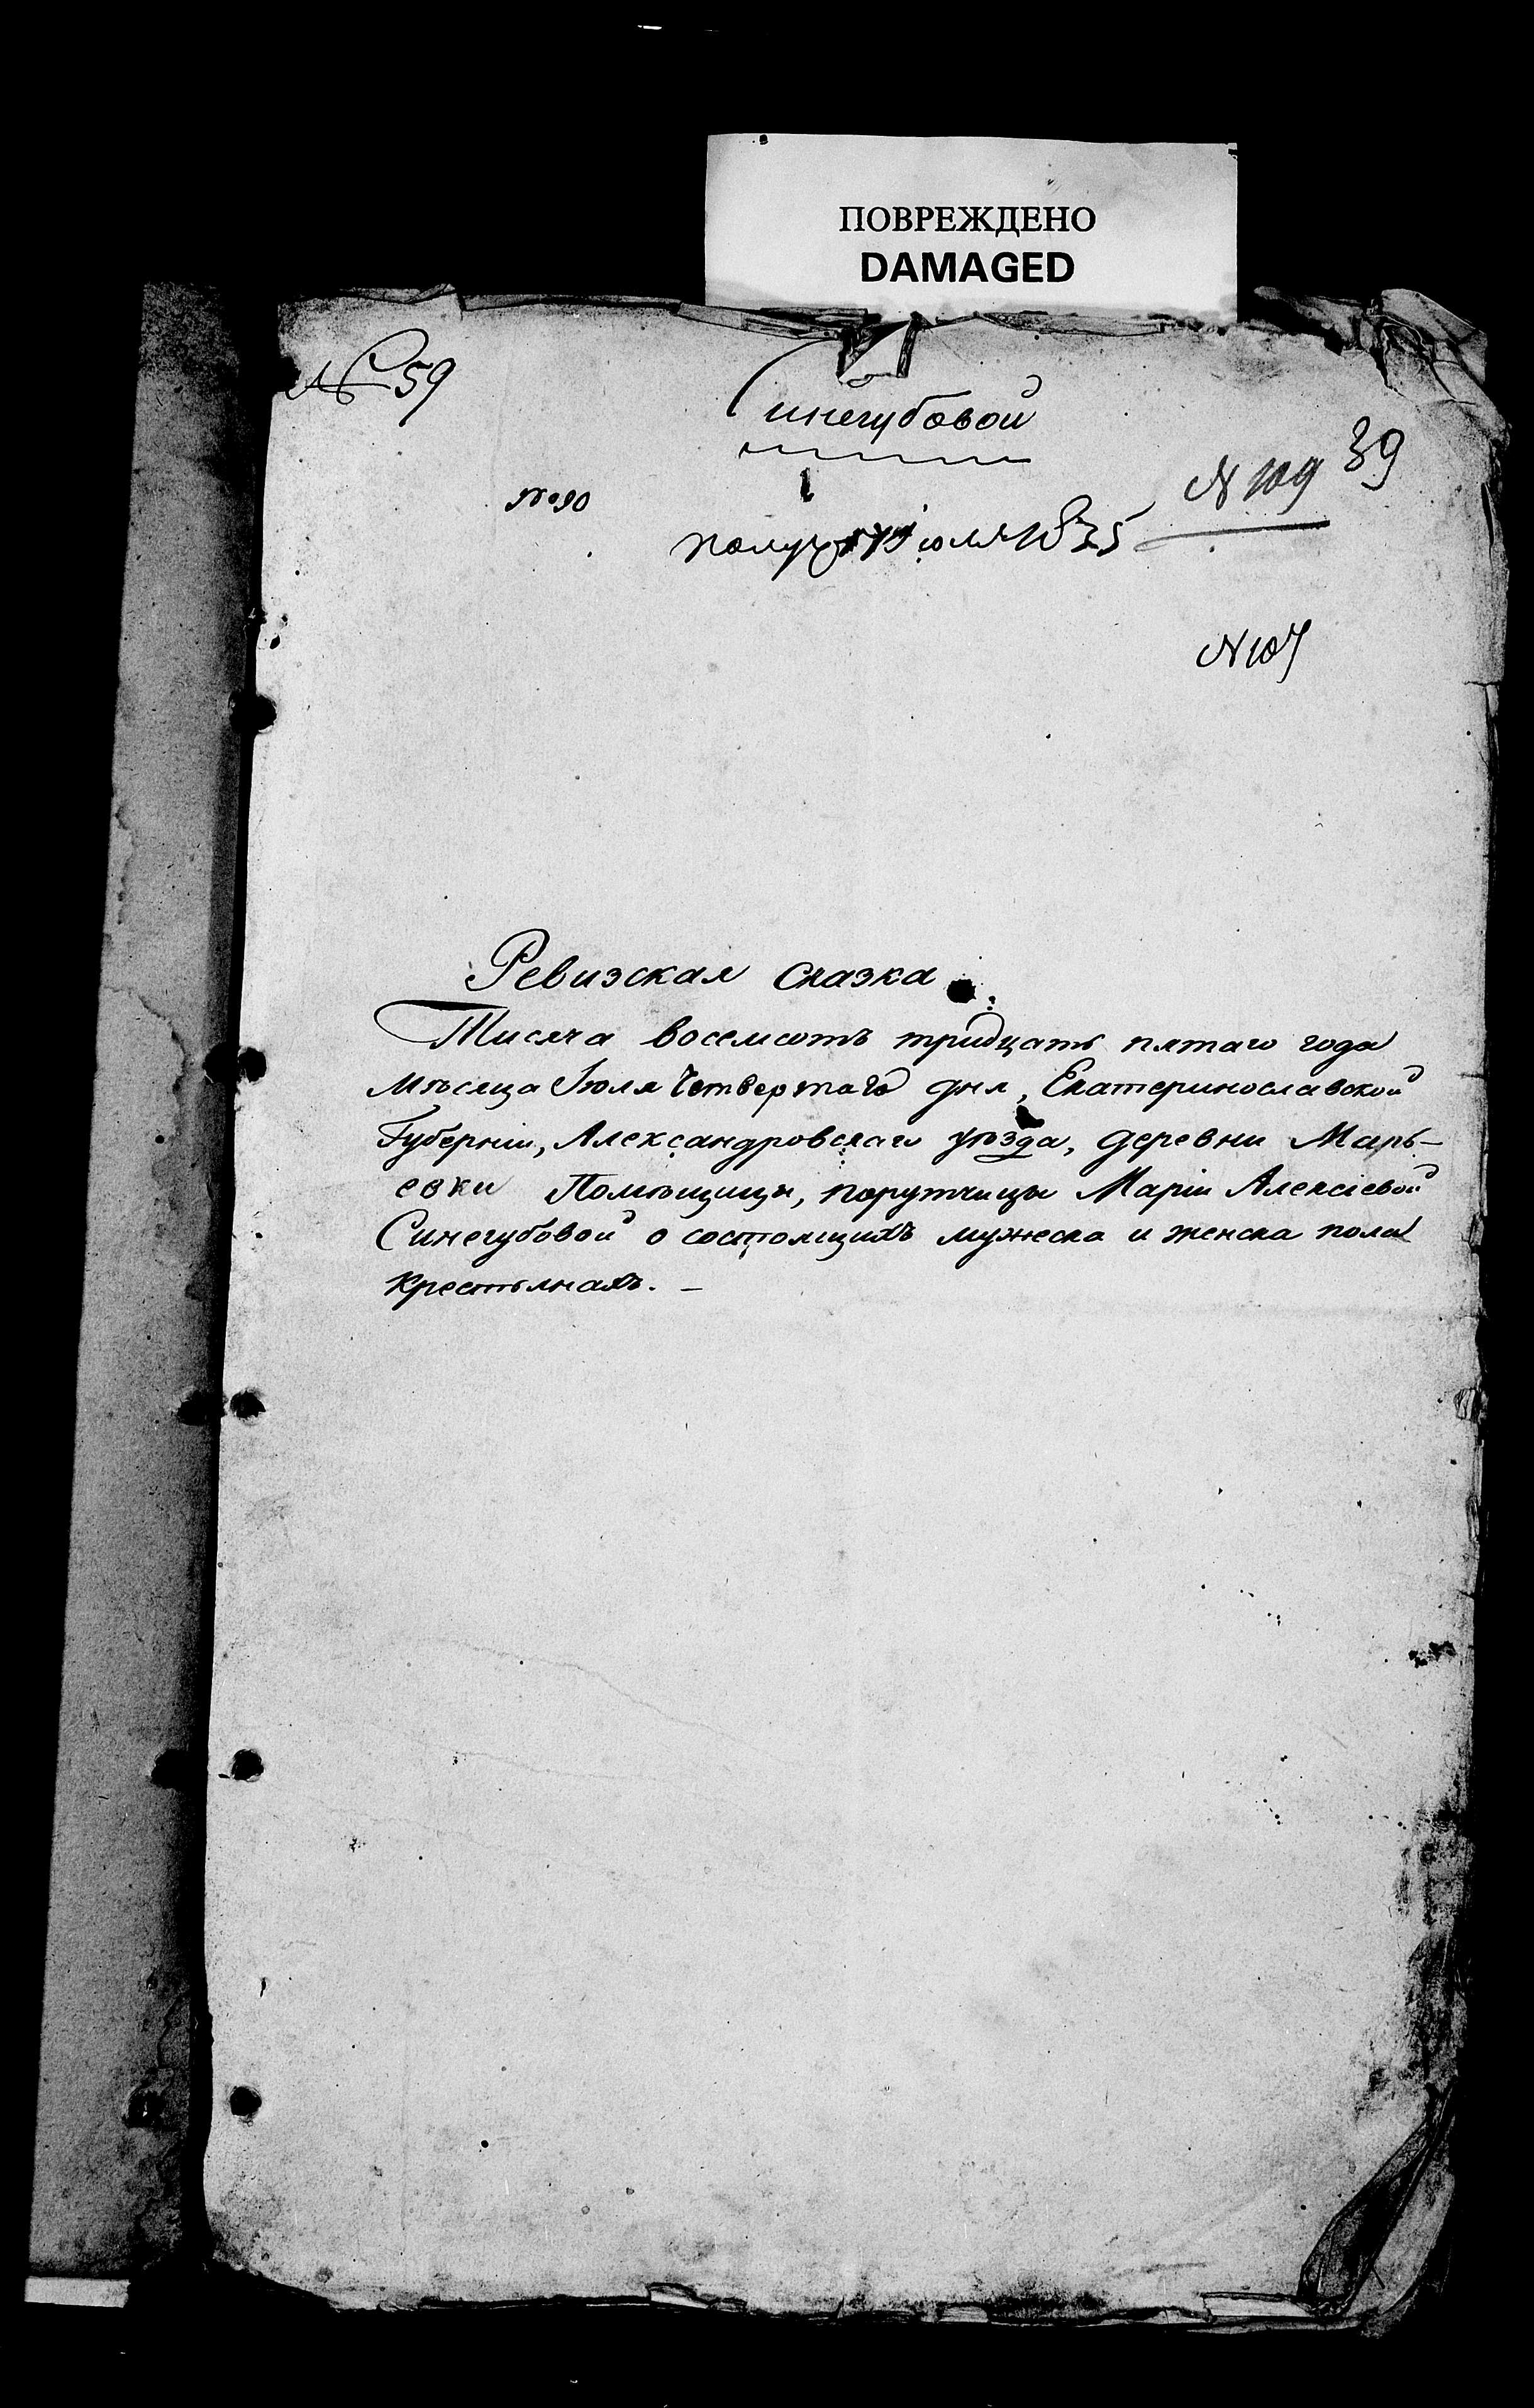 ПОВРЕЖДЕНО
DAMAGED
№ 59
Синегубовой
39
N 109
№ 90
июля 1835
N 107
Ревизская сказка
Тисяча восемсотъ тридцать пятаго года
мѣсяца Іюля Четвертаго дня, Екатеринославской
Губерніи, Александровскаго уѣзда, деревни Марь-
евки Помѣщицы, порутчицы Маріи Алексіевой
Синегубовой о состоящихъ мужеска и женска пола
крестьянахъ. —